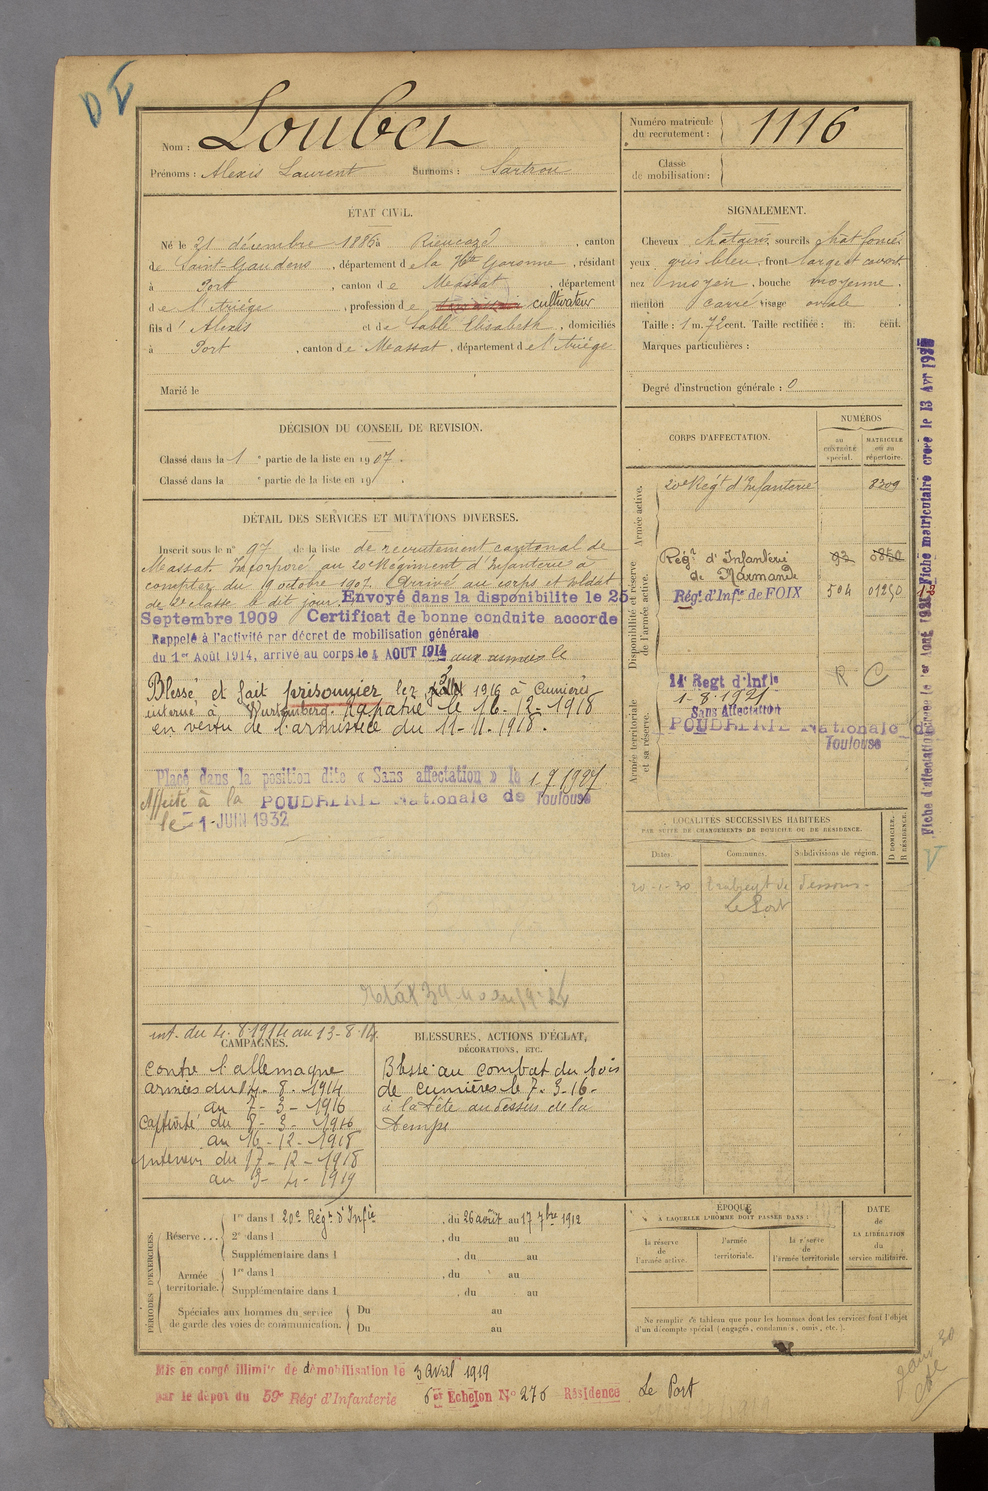 D V
Nom : Loubet
Prénoms : Alexis Laurent Surnoms : Sartrou
Numéro matricule du recrutement : 1116
Classe de mobilisation :
ÉTAT CIVIL.
Né le 21 décembre 1886 à Rieucazé , canton
de Saint-Gaudens , département de la Hte Garonne , résidant
à Port , canton de Massat , département
de l'Ariége , profession de cultivateur
fils d' Alexis et de Sablé Elisabeth , domiciliés
à Port , canton de Massat , département de l'Ariége
Marié le
SIGNALEMENT.
Cheveux châtains sourcils chât foncé
yeux gris bleu , front large et couvert
nez moyen , bouche moyenne ,
menton carré visage ovale
Taille : 1 m. 72 cent. Taille rectifiée : m. cent.
Marques particulières :
Degré d'instruction générale : 0
DÉCISION DU CONSEIL DE REVISION.
Classé dans la 1 e partie de la liste en 1907.
Classé dans la e partie de la liste en 19 .
DÉTAIL DES SERVICES ET MUTATIONS DIVERSES.
Inscrit sous le n° 97 de la liste de recrutement cantonal de
Massat. Incorporé au 20e Régiment d'Infanterie à
compter du 10 octobre 1907. Arrivé au corps et soldat
de 2e classe le dit jour. Envoyé dans la disponibilite le 25
Septembre 1909 Certificat de bonne conduite accorde
Rappelé à l'activité par décret de mobilisation générale
du 1er Août 1914, arrivé au corps le 4 AOUT 1914 aux armées le
Blessé et fait prisonnier le 7 1916 à Cumières
interné à Wurtemberg. Rapatrié le 16-12-1918
en vertu de l'armistice du 11-11-1918.
Placé dans la position dite « Sans affectation » le 1-9 1927
Affecté à la POUDRERIE Nationale de Toulouse
le 1 JUIN 1932
CORPS D'AFFECTATION.
NUMÉROS
au CONTRÔLE spécial.
MATRICULE ou au répertoire.
Armée active.
20e Régt d'Infanterie 8309
Disponibilité et réserve de l'armée active.
Régt d'Infanterie de Marmande 93 0850
Régt d'Infie de FOIX 504 01250
Armée territoriale et sa réserve.
R C
14e Regt d'Infie
1-8-1921
Sans Affectation
POUDRERIE Nationale de
Toulouse
Fiche d'affectation créée le 1er Août Fiche matriculaire créée le 13 Avr
V
LOCALITÉS SUCCESSIVES HABITÉES
PAR SUITE DE CHANGEMENTS DE DOMICILE OU DE RÉSIDENCE.
Dates. Communes. Subdivisions de région. D DOMICILE. R RÉSIDENCE.
20-1-30 dessous
Le Port
int. du 4.8.1914 au 13-8-14.
CAMPAGNES.
contre l'allemagne
armées du 14-8-1914
au 7-3-1916
Captivité du 8-3-1916
au 16-12-1918
intérieur du 17-12-1918
au 3-4-1919
BLESSURES, ACTIONS D'ÉCLAT,
DÉCORATIONS, ETC.
Blessé au combat du bois
de cumières le 7-3-16-
à la tête au dessus de la
tempe
PÉRIODES D'EXERCICES.
Réserve ... 1re dans l 20e Régt d'Infie , du 26 août au 17 7bre 1912
2e dans l , du au
Supplémentaire dans l , du au
Armée territoriale. 1re dans l , du au
Supplémentaire dans l , du au
Spéciales aux hommes du service de garde des voies de communication. Du au
Du au
ÉPOQUE
A LAQUELLE L'HOMME DOIT PASSER DANS :
la réserve de l'armée active.
l'armée territoriale.
la réserve de l'armée territoriale
DATE de LA LIBÉRATION du service militaire.
Ne remplir ce tableau que pour les hommes dont les services font l'objet
d'un décompte spécial (engagés, condamnés, omis, etc.).
Mis en congé illimité de démobilisation le 3 avril 1919
par le dépot du 59e Régt d'Infanterie 6e Echelon N° 276 Résidence Le Port